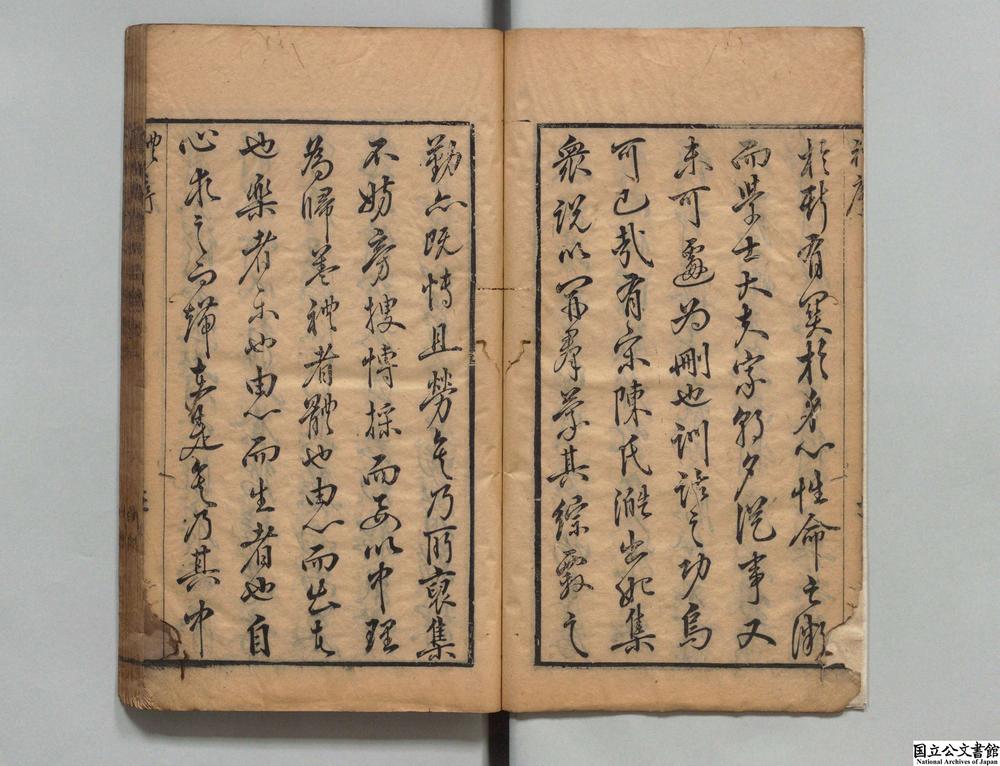 於斯有関於身心性命之微
而學士大夫家朝夕從事又
未可遽為刪也訓詁之功烏
可已哉有宋陳氏澔出始集
衆說以開羣蒙其綜覈之
勤亦既博且勞矣乃所裒集
不妨旁搜博採而要以中理
為歸蓋禮者體也由心而出者
也樂者樂也由心而生者也自
心求之而
矣乃其中
禮序
国立公文書館
National Archives of Japan